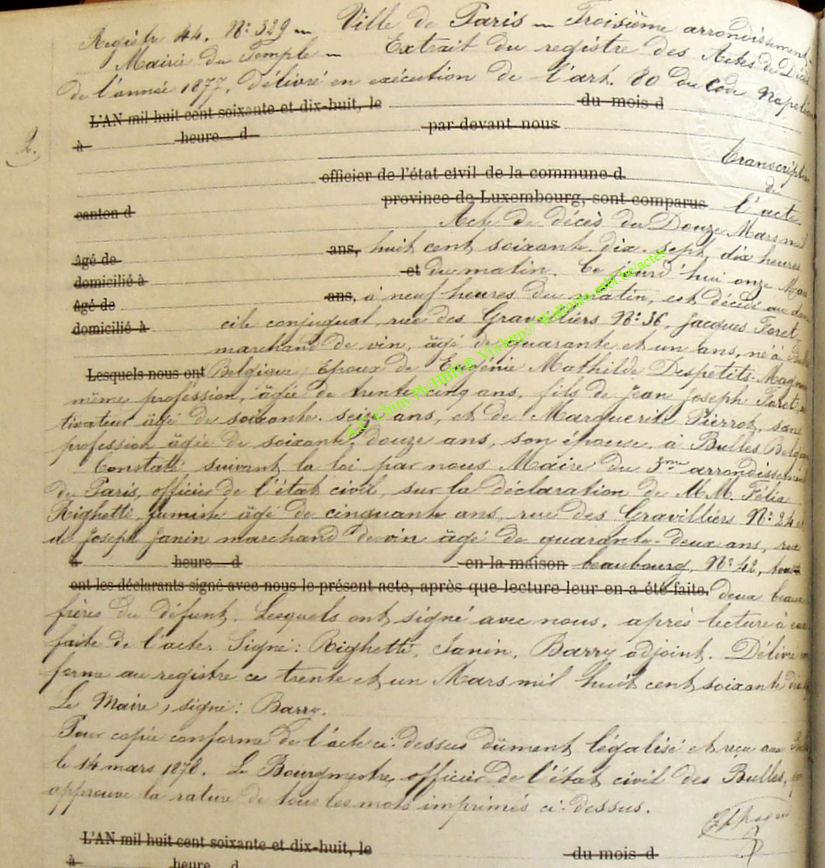 Registre 44. N° 329 — Ville de Paris — Troisième arrondissement
Mairie du Temple — Extrait du registre des Actes de Décès
de l'année 1877. Délivré en exécution de l'art. 80 du Code Napoléon
L'AN mil huit cent soixante et dix-huit, le du mois d
à heure d par devant nous
2. Transcription
de
officier de l'état civil de la commune d
canton d province de Luxembourg, sont comparus l'acte
Acte de décès du Douze Mars mil
âgé de ans, huit cent soixante dix-sept, dix heures
domicilié à et du matin. Ce jourd'hui onze Mars
âgé de ans, à neuf heures du matin, est décédé au domi
domicilié à cile conjugual, rue des Gravilliers N° 36, Jacques Foret,
marchand de vin, âgé de quarante et un ans, né à
Lesquels nous ont Belgique, Epoux de Eugénie Mathilde Despetits-
même profession, âgée de trente cinq ans, fils de Jean Joseph Foret,
tivateur âgé de soixante-seize ans, et de Marguerite Pierrot, sans
profession âgée de soixante douze ans, son épouse, à Bulles Belgique
Constaté suivant la loi par nous Maire du 3me arrondissement
de Paris, officier de l'état civil, sur la déclaration de M.M. Félix
Righetti, fumiste âgé de cinquante ans, rue des Gravilliers N° 24 et
de Joseph Janin marchand de vin âgé de quarante-deux ans, rue
à heure d en la maison beaubourg, N° 42,
ont les déclarants signé avec nous le présent acte, après que lecture leur en a été faite. deux beaux
frères du défunt. Lesquels ont signé avec nous, après lecture à eux
faite de l'acte. Signé: Righetti, Janin, Barry adjoint. Délivré
forme au registre ce trente et un Mars mil huit cent soixante dix
Le Maire, signé: Barry.
Pour copie conforme de l'acte ci-dessus dûment légalisé et reçu
le 14 mars 1878. Le Bourgmestre, officier de l'état civil des Bulles,
approuve la rature de tous les mots imprimés ci-dessus.
L'AN mil huit cent soixante et dix-huit, le du mois d
à heure d